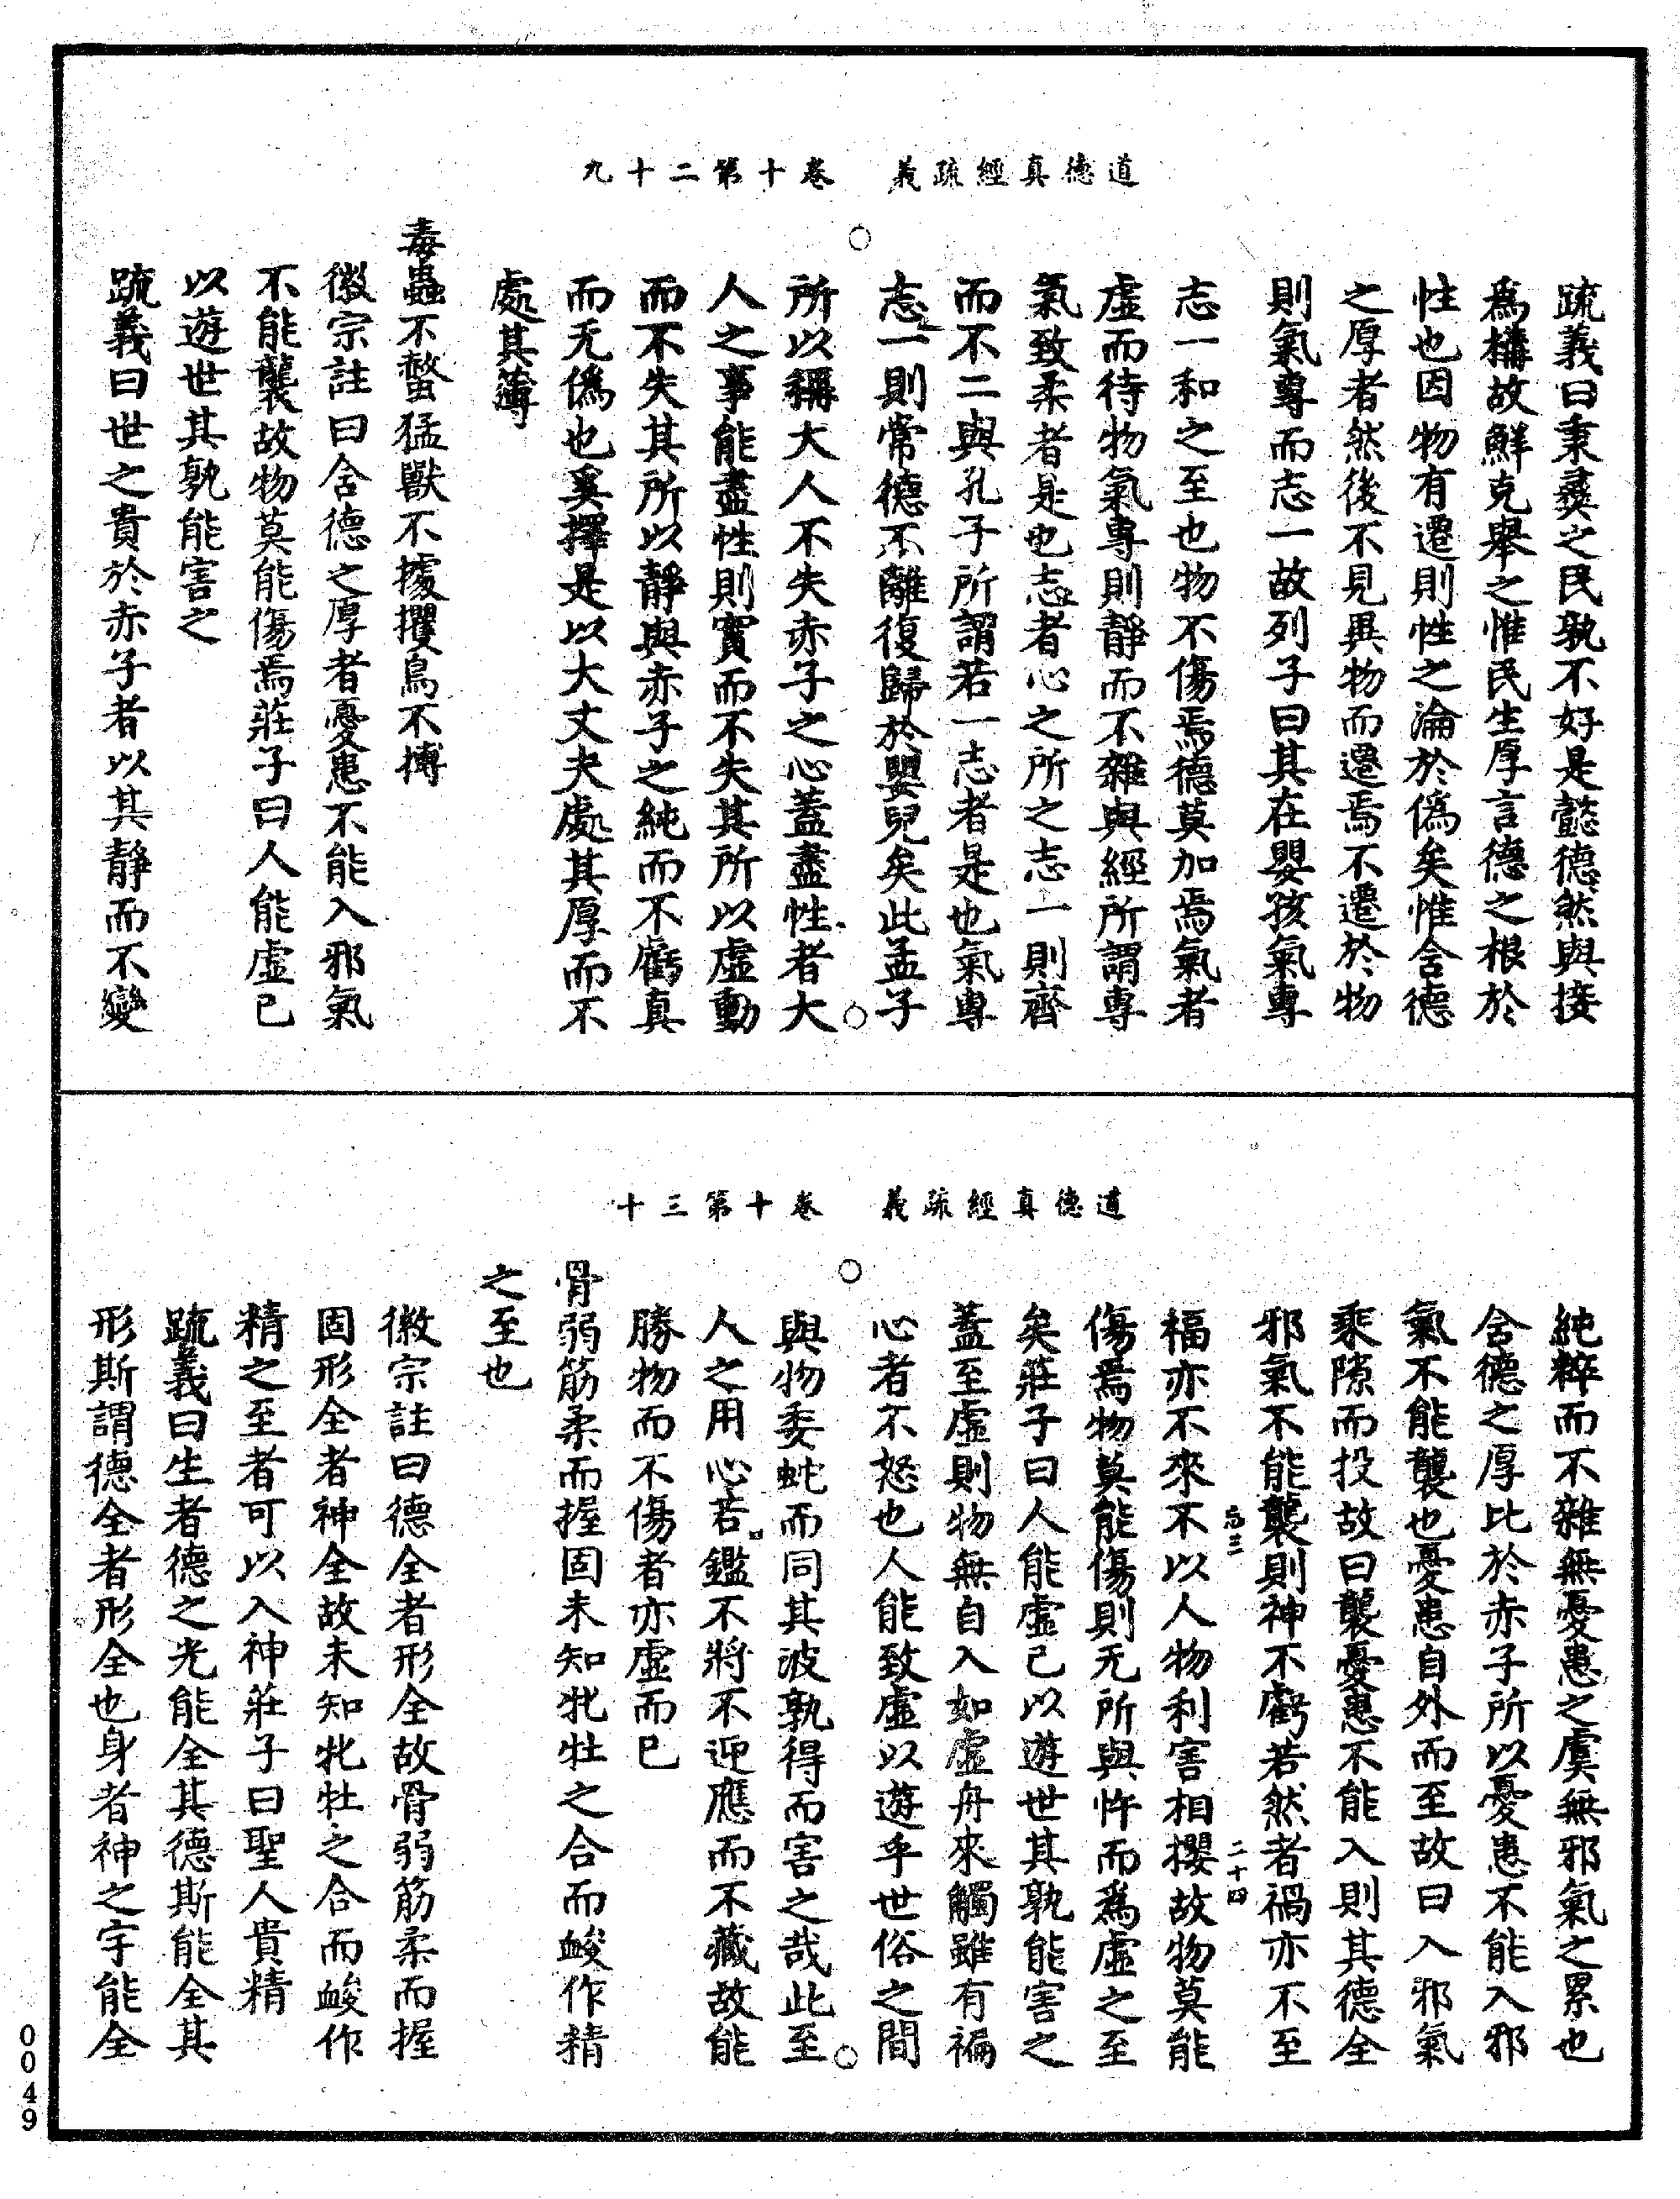 道德真經疏義　卷十第二十九
疏義曰秉彝之民孰不好是懿德然與接
爲構故鮮克舉之惟民生厚言德之根於
性也因物有遷則性之淪於僞矣惟含德
之厚者然後不見異物而遷焉不遷於物
則氣專而志一故列子曰其在嬰孩氣專
志一和之至也物不傷焉德莫加焉氣者
虛而待物氣專則靜而不雜與經所謂專
氣致柔者是也志者心之所之志一則齊
而不二與孔子所謂若一志者是也氣專
志一則常德不離復歸於嬰兒矣此孟子
所以稱大人不失赤子之心蓋盡性者大
人之事能盡性則實而不失其所以虛動
而不失其所以靜與赤子之純而不虧真
而无僞也奚擇是以大丈夫處其厚而不
處其薄
毒蟲不螫猛獸不據攫鳥不搏
徽宗註曰含德之厚者憂患不能入邪氣
不能襲故物莫能傷焉莊子曰人能虛己
以遊世其孰能害之
疏義曰世之貴於赤子者以其靜而不變
道德真經疏義　卷十第三十
純粹而不雜無憂患之虞無邪氣之累也
含德之厚比於赤子所以憂患不能入邪
氣不能襲也憂患自外而至故曰入邪氣
乘隙而投故曰襲憂患不能入則其德全
邪氣不能襲則神不虧若然者禍亦不至
爲三　二十四
福亦不來不以人物利害相攖故物莫能
傷焉物莫能傷則无所與忤而爲虛之至
矣莊子曰人能虛己以遊世其孰能害之
蓋至虛則物無自入如虛舟來觸雖有褊
心者不怒也人能致虛以遊乎世俗之間
與物委蛇而同其波孰得而害之哉此至
人之用心若鑑不將不迎應而不藏故能
勝物而不傷者亦虛而已
骨弱筋柔而握固未知牝牡之合而峻作精
之至也
徽宗註曰德全者形全故骨弱筋柔而握
固形全者神全故未知牝牡之合而峻作
精之至者可以入神莊子曰聖人貴精
疏義曰生者德之光能全其德斯能全其
形斯謂德全者形全也身者神之宇能全
0049